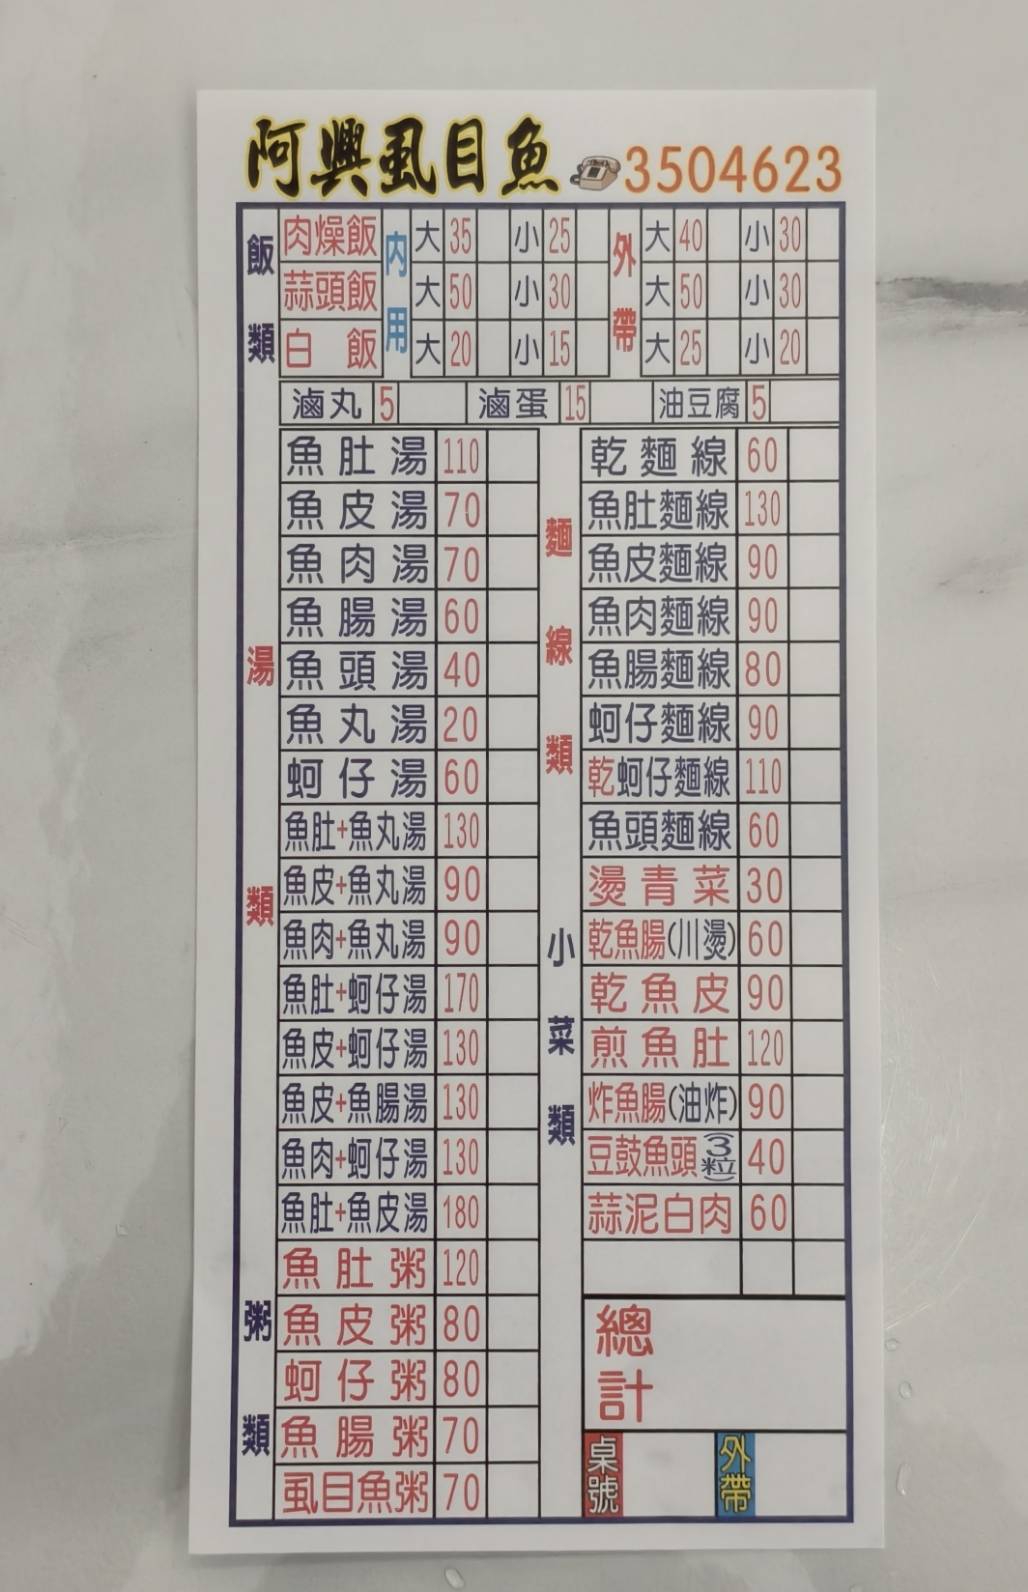 阿興虱目魚 3504623
飯類
內用 外帶
肉燥飯 大 35 小 25 大 40 小 30
蒜頭飯 大 50 小 30 大 50 小 30
白飯 大 20 小 15 大 25 小 20
滷丸 5 滷蛋 15 油豆腐 5
湯類
魚肚湯 110
魚皮湯 70
魚肉湯 70
魚腸湯 60
魚頭湯 40
魚丸湯 20
蚵仔湯 60
魚肚+魚丸湯 130
魚皮+魚丸湯 90
魚肉+魚丸湯 90
魚肚+蚵仔湯 170
魚皮+蚵仔湯 130
魚皮+魚腸湯 130
魚肉+蚵仔湯 130
魚肚+魚皮湯 180
粥類
魚肚粥 120
魚皮粥 80
蚵仔粥 80
魚腸粥 70
虱目魚粥 70
麵線類
乾麵線 60
魚肚麵線 130
魚皮麵線 90
魚肉麵線 90
魚腸麵線 80
蚵仔麵線 90
乾蚵仔麵線 110
魚頭麵線 60
小菜類
燙青菜 30
乾魚腸(川燙) 60
乾魚皮 90
煎魚肚 120
炸魚腸(油炸) 90
豆鼓魚頭(3粒) 40
蒜泥白肉 60
總計
桌號 外帶